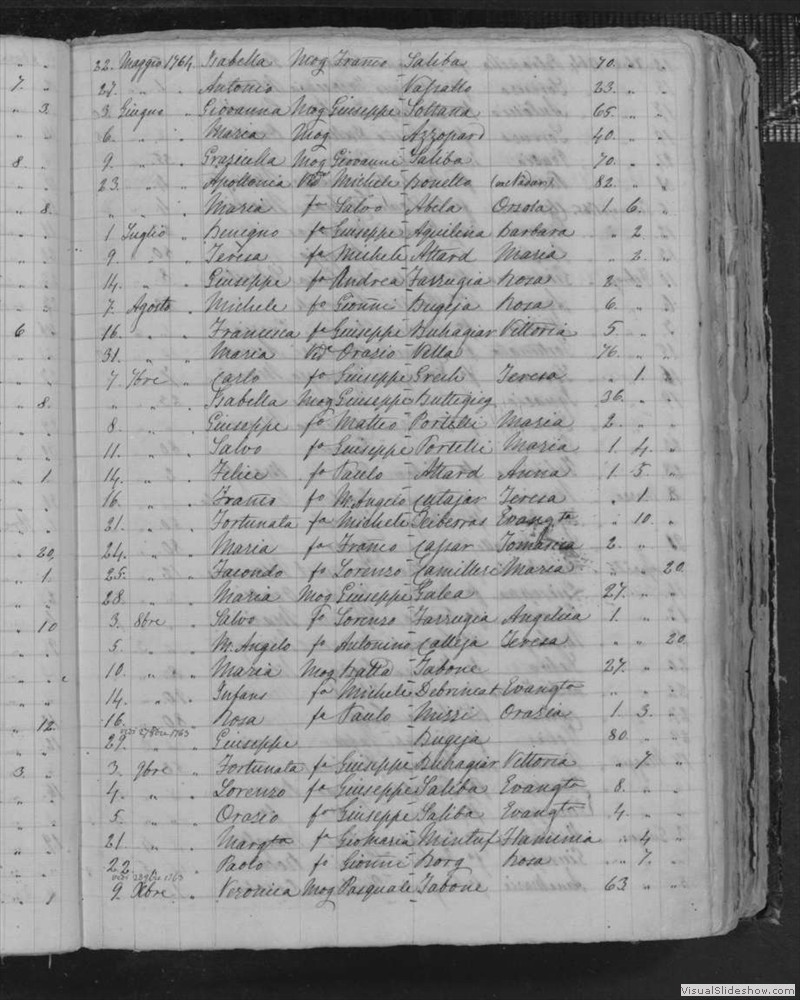 22. Maggio 1764 Isabella Mog Franco Saliba 70. " "
7. 27. " " Antonio Vassallo 23. " "
3. 3. Giugno " Giovanna Mog Giuseppe Soltana 65 " "
6. " " Maria Mog Azzopard 40. " "
8. 9. " " Graziella Mog Giovanni Saliba 70. " "
23. " " Apollonia Vid Michele Bonello 82. " "
8. " " " Maria fa Salvo Abela Orsola 1 6. "
1. Luglio " Benigno fo Giuseppe Aquilina Barbara " 2. "
9. " " Teresa fa Michele Attard Maria " 2. "
14. " " Giuseppe fo Andrea Farrugia Rosa 2. " "
7. Agosto " Michele fo Gionni Bugeja Rosa 6. " "
6 16. " " Francesca fa Giuseppe Buhagiar Vittoria 5 " "
31. " " Maria Vid Orazio Vella 76. " "
7. 7bre " Carlo fo Giuseppe Grech Teresa " 1. "
8. " " " Isabella Mog Giuseppe Buttigieg 36. " "
8. " " Giuseppe fo Matteo Portelli Maria 2. " "
11. " " Salvo fo Giuseppe Portelli Maria 1. 4. "
1 14. " " Felice fo Paulo Attard Anna 1 5. "
16. " " Franco fo M. Angelo Cutajar Teresa " 1. "
21. " " Fortunata fa Michele Xeiberras Evangta " 10. "
20. 24. " " Maria fa Franco Capar 2. " "
1. 25. " " Facondo fo Lorenzo Camilleri Maria " " 20.
28. " " Maria Mog Giuseppe Galea 27. " "
10 3. 8bre " Salvo fo Lorenzo Farrugia Angelica 1. " "
5. " " M. Angelo fo Antonino Calleja Teresa " " 20
10. " " Maria Mog Batta Tabone 27. " "
14. " " Infans fo Michele Debrincat Evangta " " "
12. 16. " " Rosa fa Paulo Mizzi Orazia 1. 3. "
29. " " Giuseppe Bugeja 80. " "
3. 3. 9bre " Fortunata fa Giuseppe Buhagiar Vittoria " 7. "
4. " " Lorenzo fo Giuseppe Saliba Evangta 8. " "
5. " " Orazio fo Giuseppe Saliba Evangta 4. " "
21 " " Margta fa Giomaria Mintuf Flaminia " 4 "
22. " " Paolo fo Gionni Borg Rosa " 7. "
1 9. Xbre " Veronica Mog Pasquale Tabone 63 " "
VisualSlideshow.com